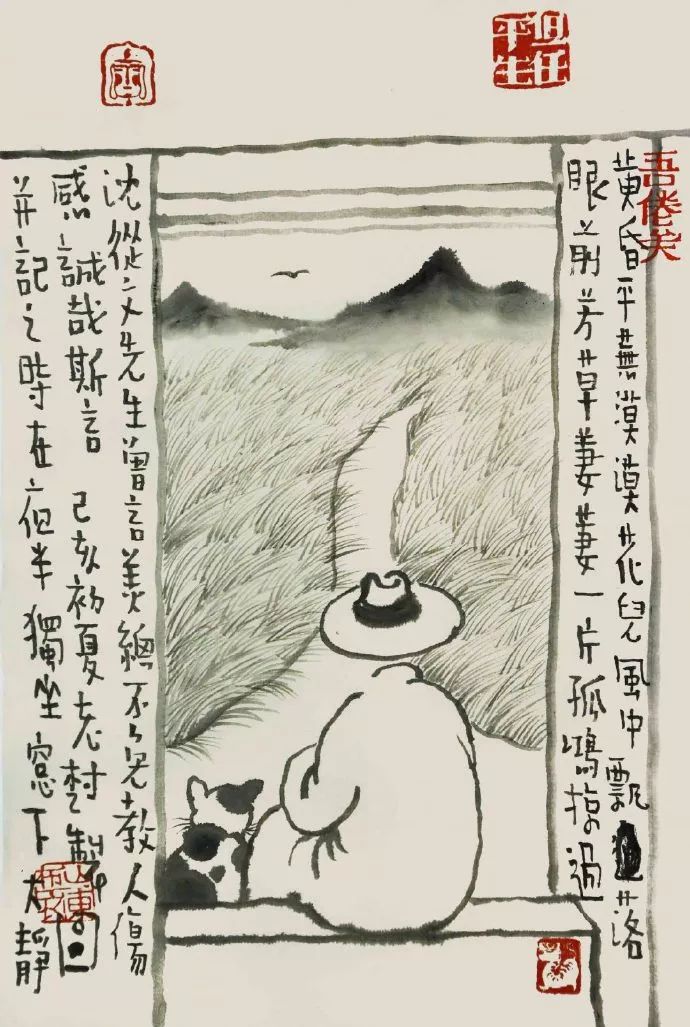 黄昏平蕪漠漠花兒風中飄落
眼前芳草萋萋一片孤鴻掠過
沈從文先生曾言美總不免教人傷
感 誠哉斯言 己亥初夏老村製
并記之時在夜半獨坐窓下大靜
任平生